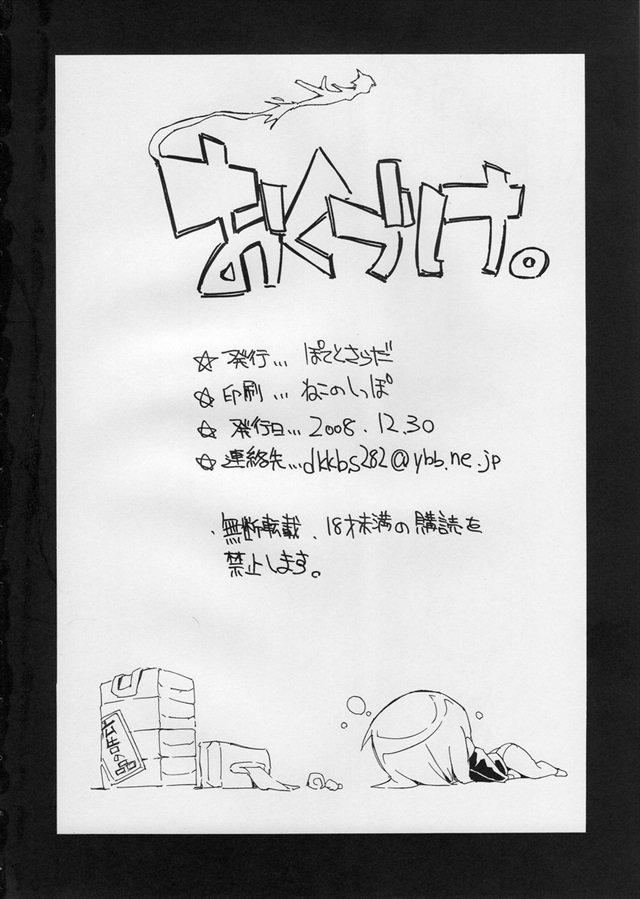 おくづけ。
☆発行...ぽてとさらだ
☆印刷...ねこのしっぽ
☆発行日...2008.12.30
☆連絡先...dkkbs282@ybb.ne.jp
・無断転載、18才未満の購読を
禁止します。
広告の品